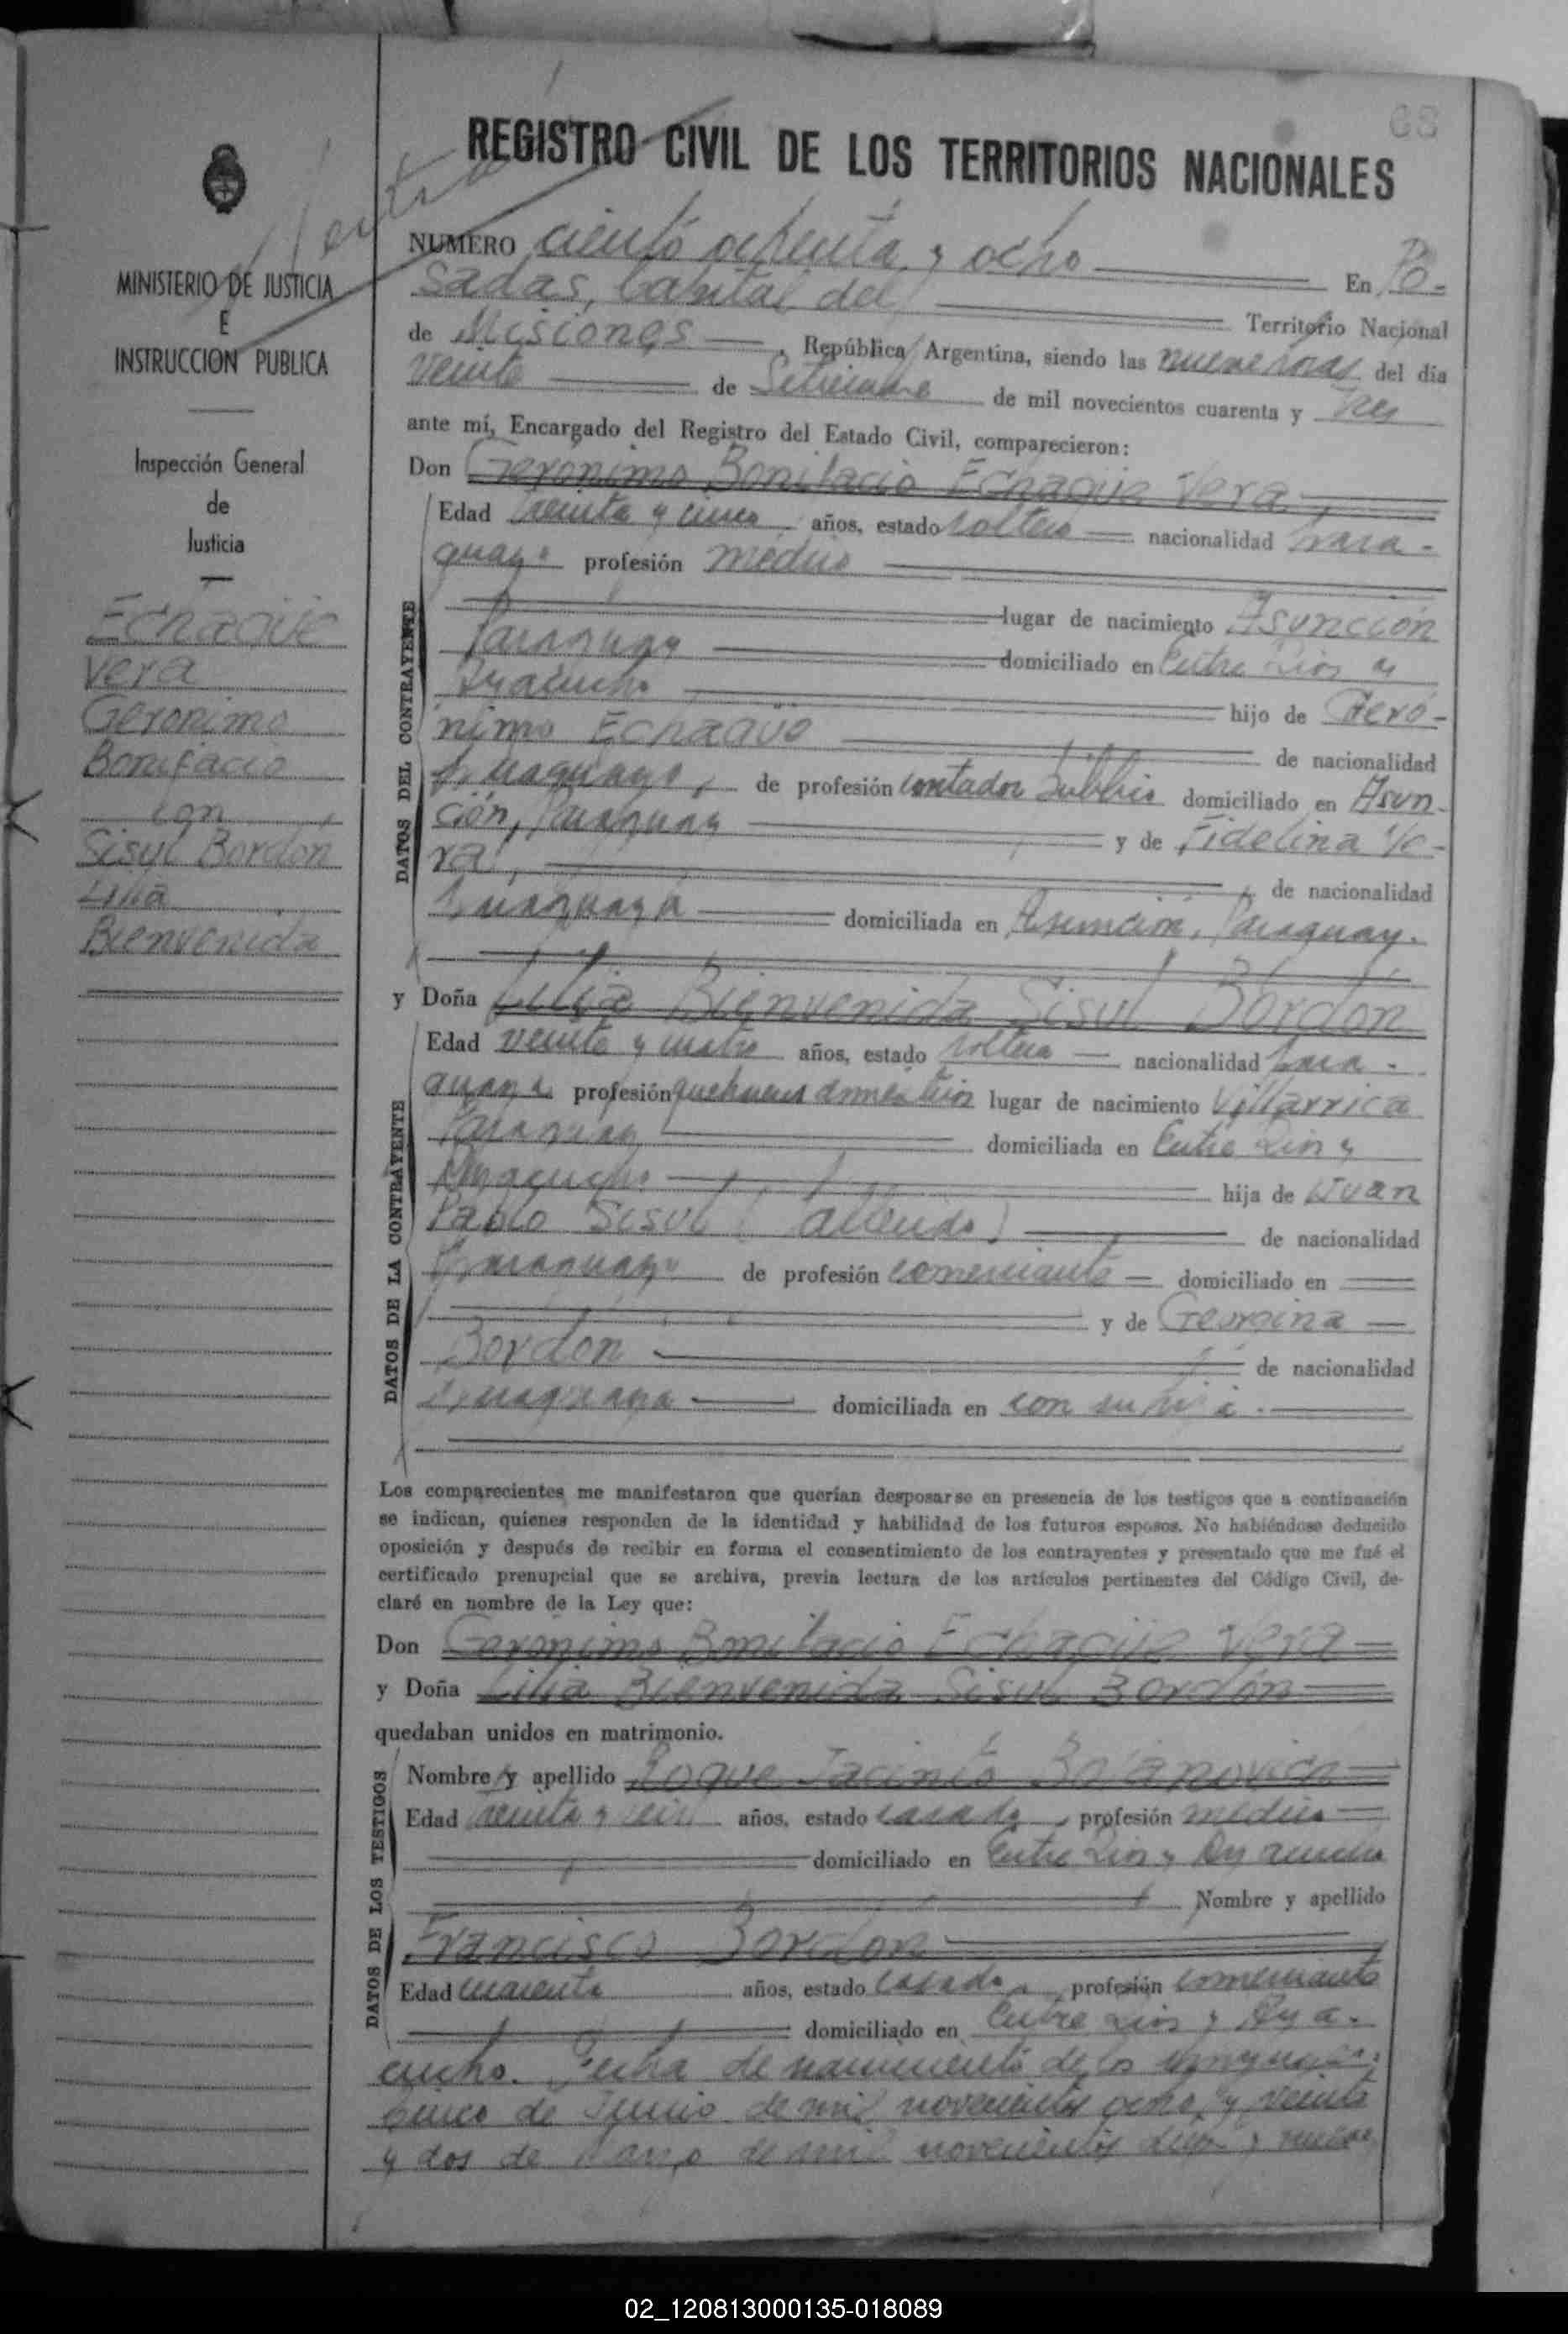 68
REGISTRO CIVIL DE LOS TERRITORIOS NACIONALES
MINISTERIO DE JUSTICIA
E
INSTRUCCION PUBLICA
Inspección General
de
Justicia
Echagüe
Vera
Geronimo
Bonifacio
con
Sisul Bordón
Lilia
Bienvenida
NUMERO ciento ochenta y ocho En Po-
sadas, Capital del Territorio Nacional
de Misiones, República Argentina, siendo las nueve horas del día
veinte de Setiembre de mil novecientos cuarenta y tres
ante mí, Encargado del Registro del Estado Civil, comparecieron:
Don Geronimo Bonifacio Echagüe Vera,
DATOS DEL CONTRAYENTE
Edad treinta y cinco años, estado soltero nacionalidad para-
guayo profesión médico
lugar de nacimiento Asunción
Paraguay domiciliado en Entre Rios y
Ayacucho hijo de Geró-
nimo Echagüe de nacionalidad
paraguayo, de profesión contador público domiciliado en Asun-
ción, Paraguay y de Fidelina Ve-
ra, de nacionalidad
paraguaya domiciliada en Asunción, Paraguay.
y Doña Lilia Bienvenida Sisul Bordón
DATOS DE LA CONTRAYENTE
Edad veinte y cuatro años, estado soltera nacionalidad para-
guaya profesión quehaceres domésticos lugar de nacimiento Villarrica
Paraguay domiciliada en Entre Rios y
Ayacucho hija de Juan
Pablo Sisul (fallecido) de nacionalidad
paraguayo de profesión comerciante domiciliado en
y de Georgina
Bordón de nacionalidad
paraguaya domiciliada en con su hija.
Los comparecientes me manifestaron que querían desposarse en presencia de los testigos que a continuación
se indican, quienes responden de la identidad y habilidad de los futuros esposos. No habiéndose deducido
oposición y después de recibir en forma el consentimiento de los contrayentes y presentado que me fué el
certificado prenupcial que se archiva, previa lectura de los artículos pertinentes del Código Civil, de-
claré en nombre de la Ley que:
Don Geronimo Bonifacio Echagüe Vera
y Doña Lilia Bienvenida Sisul Bordón
quedaban unidos en matrimonio.
DATOS DE LOS TESTIGOS
Nombre y apellido Roque Jacinto
Edad treinta y seis años, estado casado, profesión médico
domiciliado en Entre Rios y Ayacucho
Nombre y apellido
Francisco Bordón
Edad cuarenta años, estado casado, profesión comerciante
domiciliado en Entre Rios y Aya-
cucho. Fecha de nacimiento de los
cinco de Junio de mil novecientos ocho y veinte
y dos de Marzo de mil novecientos diez y nueve
02_120813000135-018089